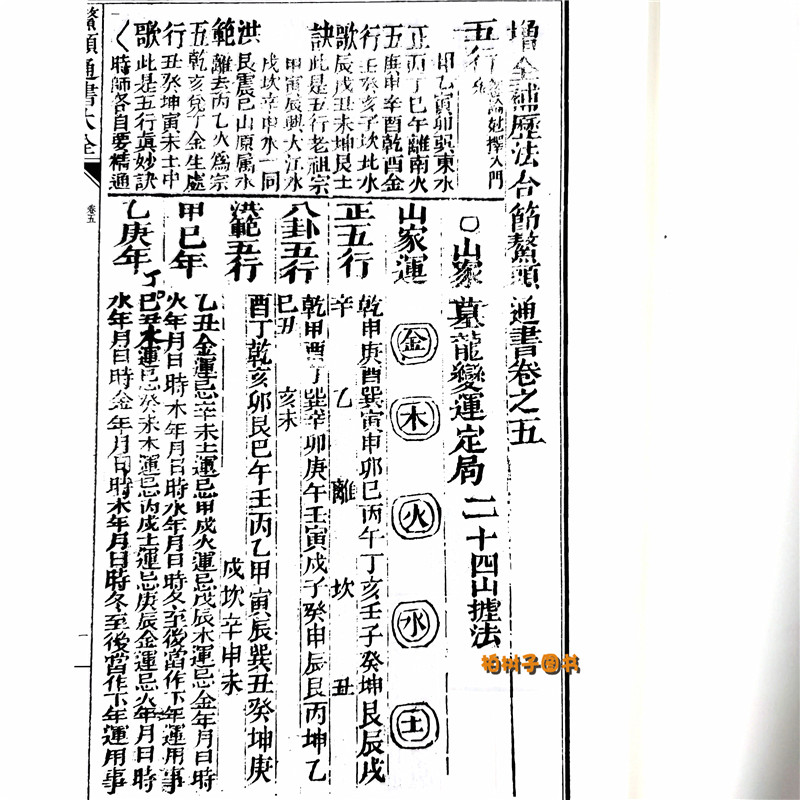 增全補歷法台節鰲頭通書卷之五
○山家墓龍變運定局 二十四山摭法
山家運 金 木 火 水 土
正五行 乾申庚酉巽寅甲卯巳丙午丁亥壬子癸坤艮辰戌
辛 乙 離 坎 丑
八卦五行 乾甲酉丁巽辛卯庚午壬寅戌子癸申辰艮丙坤乙
巳丑 亥未
洪範五行 酉丁乾亥卯艮巳午壬丙乙甲寅辰巽丑癸坤庚
戌坎辛申未
甲己年 乙丑金運忌辛未土運忌甲戌火運忌戊辰木運忌金年月日時
火年月日時木年月日時水年月日時冬至後當作下年運用事
乙庚年 己丑水運忌癸未木運忌丙戌土運忌庚辰金運忌火年月日時
水年月日時金年月日時木年月日時冬至後當作下年運用事
五行
論妙擇入門
甲乙寅卯巽東水
正丙丁巳午離南火
五庚申辛酉乾酉金
行壬癸亥子坎北水
歌辰戌丑未坤艮土
訣此是五行老祖宗
甲寅辰巽大江水
戌坎辛申水一同
洪艮震巳山原屬水
範離去丙乙火為宗
五乾亥兌丁金生處
行丑癸坤寅未土中
歌此是五行真妙訣
時師各自要精通
鰲頭通書大全
卷五
一
柏树子图书